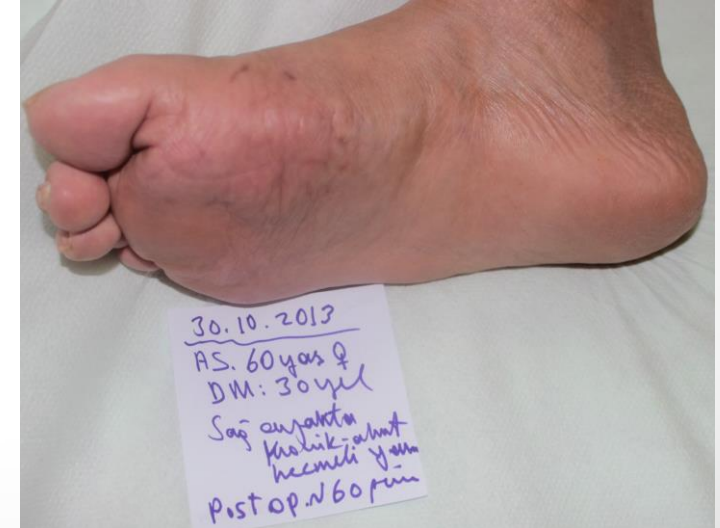 30.10.2013
AS. 60 yaş ♀
DM: 30 yıl
Sağ ayakta
kronik-akut
nekrozlu yara
Post op. N 60 gün